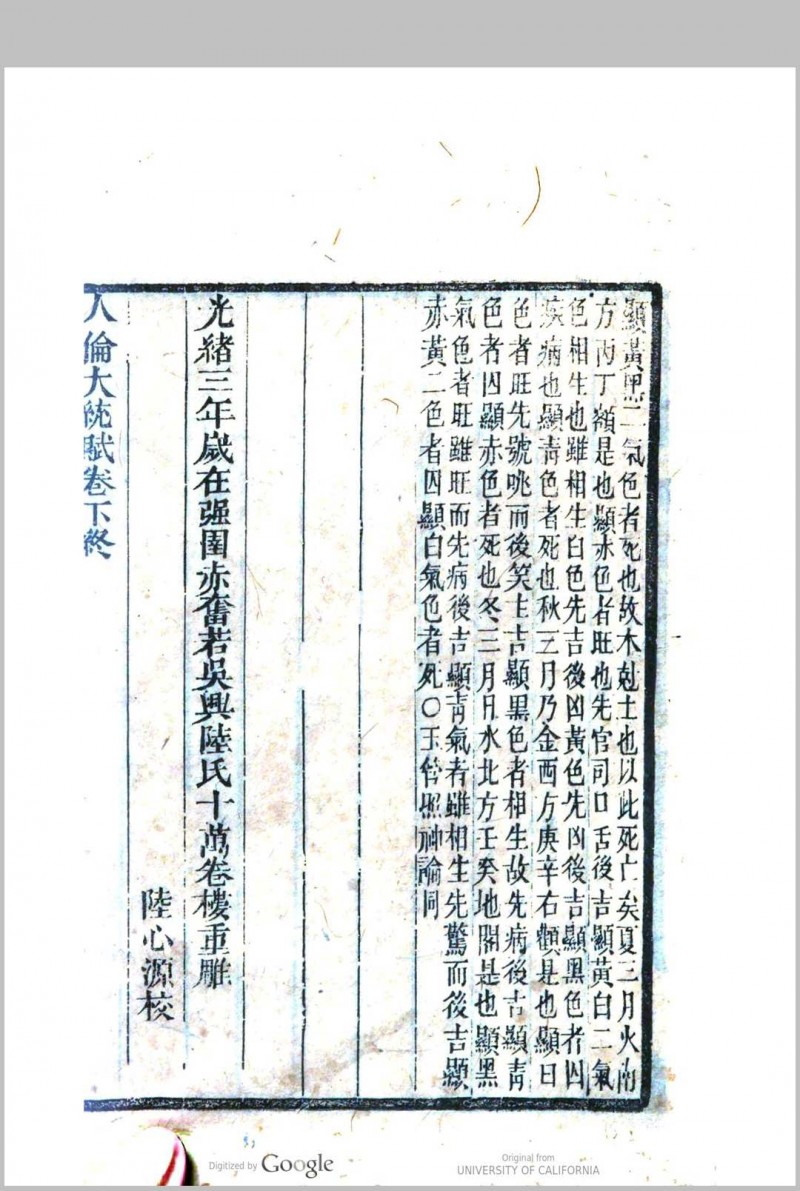 顯黃黑二氣色者死也故木尅土也以此死亡矣夏三月火南
方丙丁額是也顯赤色者旺也先官司口舌後吉顯黃白二氣
色相生也雖相生白色先吉後凶黃色先凶後吉顯黑色者囚
疾病也顯青色者死也秋三月乃金西方庚辛右顴是也顯白
色者旺先號咷而後笑主吉顯黑色者相生故先病後吉顯青
色者囚顯赤色者死也冬三月日水北方壬癸地閣是也顯黑
氣色者旺雖旺而先病後吉顯青氣者雖相生先驚而後吉顯
赤黃二色者囚顯白氣色者死〇玉管照神論同
光緒三年歲在强圉赤奮若吳興陸氏十萬卷樓重雕
陸心源校
人倫大統賦卷下終
Digitized by Google
Original from
UNIVERSITY OF CALIFORNIA